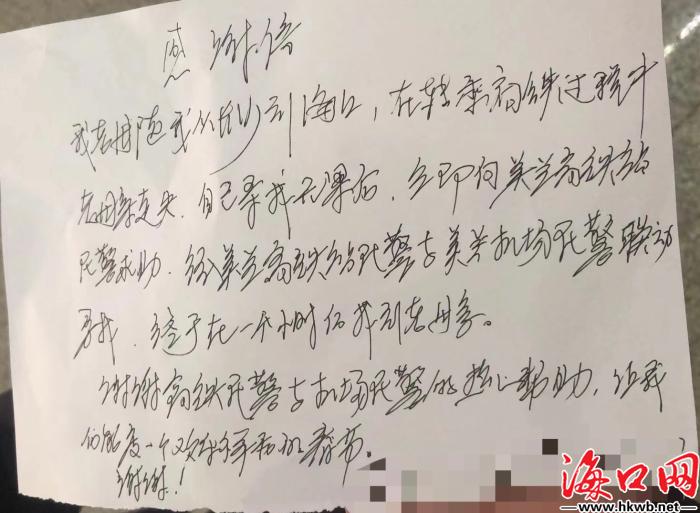 感谢信
我老母随我从杭州到海口，在转乘高铁过程中
老母亲走失，自己寻找无果后，立即向美兰高铁站
民警求助．经美兰高铁站民警与美兰机场民警联动
寻找，终于在一个小时后找到老母亲。
谢谢高铁民警与机场民警的热心帮助，让我
们能度一个欢乐祥和的春节。
谢谢！
海口网
www.hkwb.net